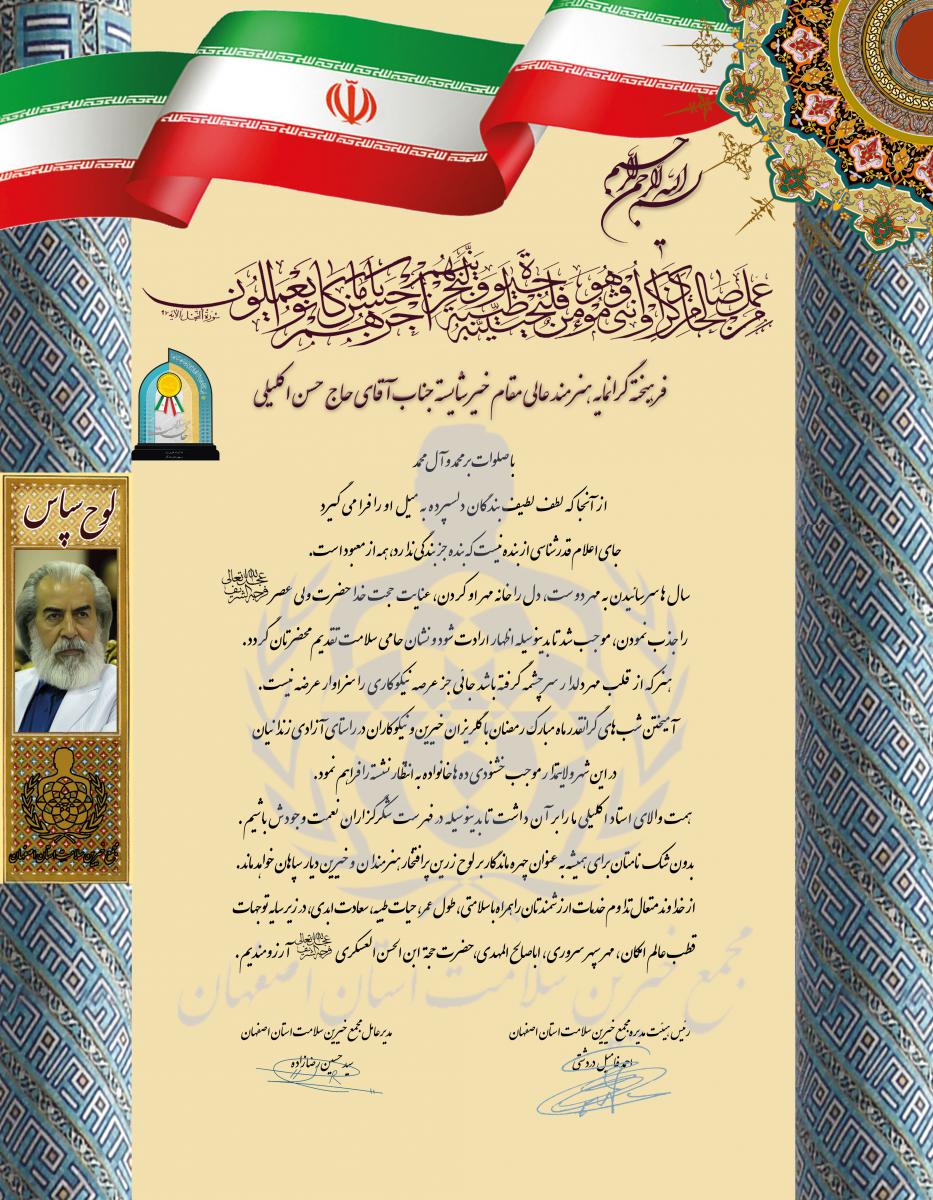 بسم الله الرحمن الرحیم
من عمل صالحا من ذکر او انثی و هو مؤمن فلنحیینه حیوة طیبة و لنجزینهم اجرهم باحسن ما کانوا یعملون
سورة النحل الآیة ۹۶
فرهیخته گرانمایه، هنرمند عالی مقام خیر شایسته جناب آقای حاج حسن اکلیلی
با صلوات بر محمد و آل محمد
از آنجا که لطف لطیف بندگان دلسپرده به میل او را فرا می گیرد
جای اعلام قدرشناسی از بنده نیست که بنده جز بندگی ندارد، همه از معبود است.
سال ها سر سائیدن به مهر دوست، دل را خانه مهر او کردن، عنایت حجت خدا حضرت ولی عصر عجل الله تعالی فرجه الشریف
را جذب نمودن، موجب شد تا بدینوسیله اظهار ارادت شود و نشان حامی سلامت تقدیم محضرتان گردد.
هنر که از قلب مهر دلدار سرچشمه گرفته باشد جائی جز عرصه نیکوکاری را سزاوار عرضه نیست.
آمیختن شب های گرانقدر ماه مبارک رمضان با گلریزان خیرین و نیکوکاران در راستای آزادی زندانیان
در این شهر ولایتمدار موجب خشنودی ده ها خانواده به انتظار نشسته را فراهم نمود.
همت والای استاد اکلیلی ما را بر آن داشت تا بدینوسیله در فهرست شکرگزاران نعمت وجودش باشیم.
بدون شک نامتان برای همیشه به عنوان چهره ماندگار بر لوح زرین پرافتخار هنرمندان و خیرین دیار سپاهان خواهد ماند.
از خداوند متعال تداوم خدمات ارزشمندتان را همراه با سلامتی، طول عمر، حیات طیبه، سعادت ابدی، در زیر سایه توجهات
قطب عالم امکان، مهر سپهر سروری، اباصالح المهدی، حضرت حجة ابن الحسن العسکری عجل الله تعالی فرجه الشریف آرزومندیم.
مجمع خیرین سلامت استان اصفهان
رئیس هیئت مدیره مجمع خیرین سلامت استان اصفهان
احمد فامیل دردشتی
مدیرعامل مجمع خیرین سلامت استان اصفهان
سید حسین رضازاده
لوح سپاس
مجمع خیرین سلامت استان اصفهان